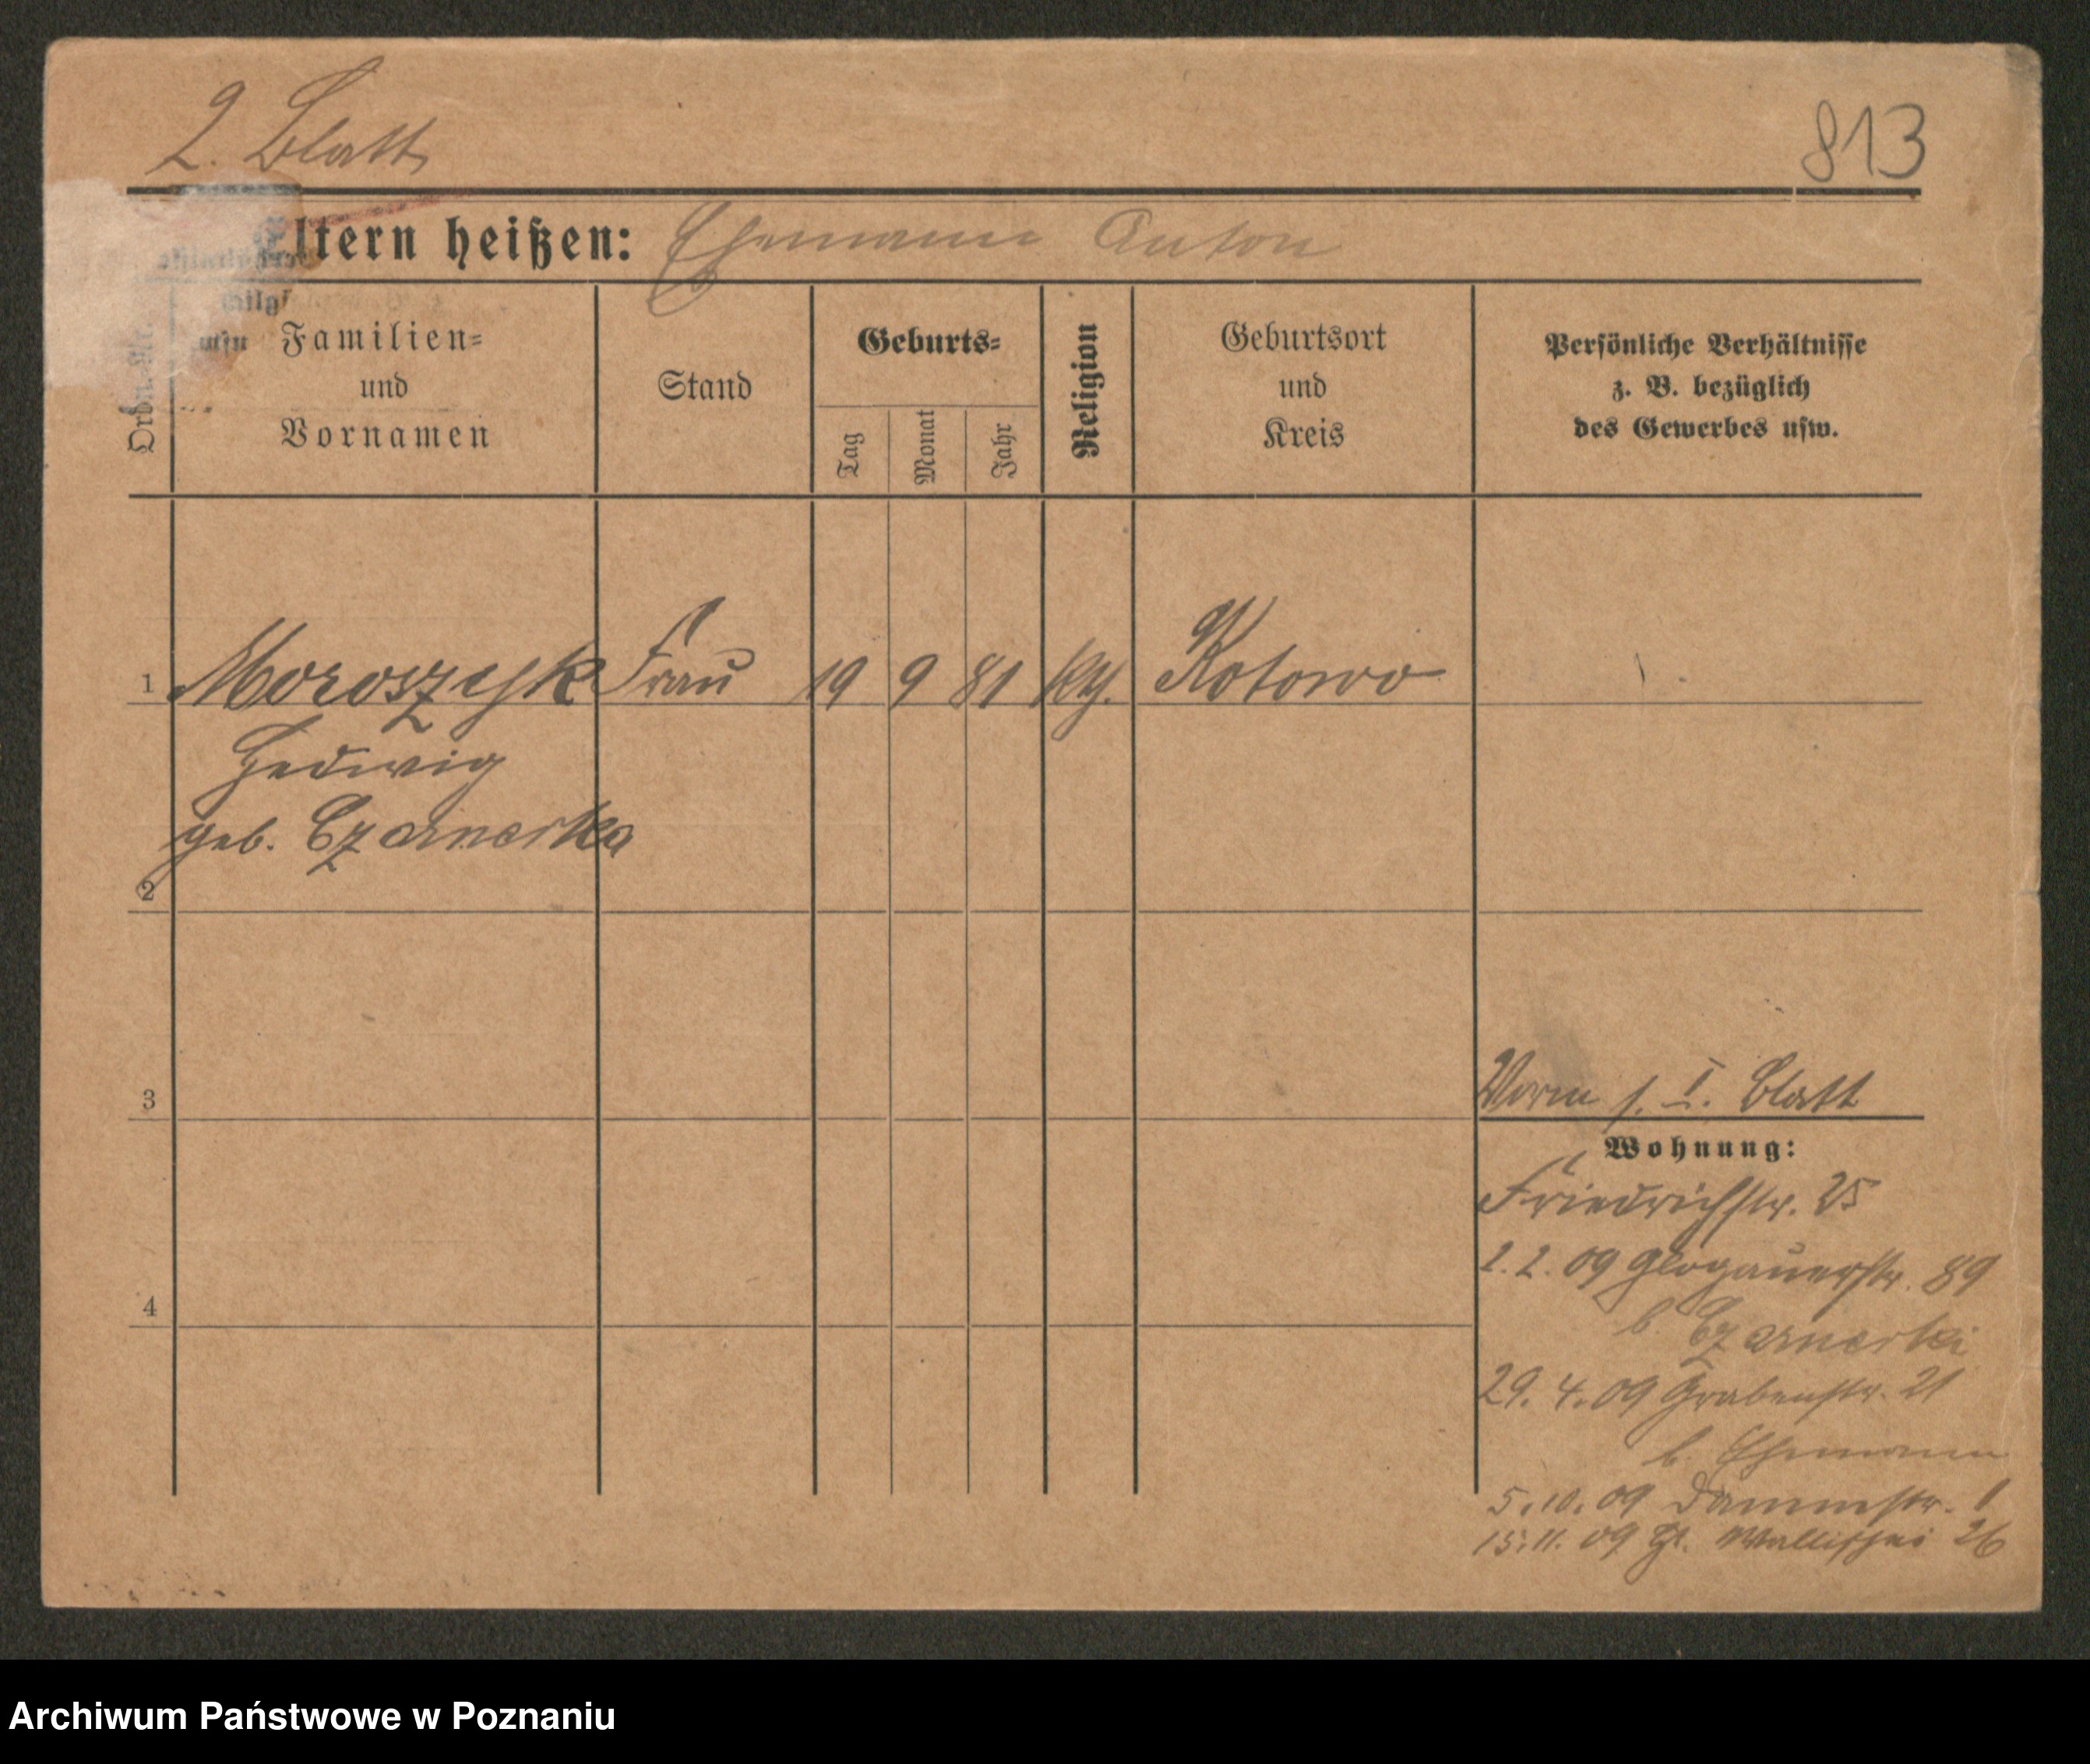 2. Blatt
813
Eltern heißen: Ehemann Anton
Ordn.-Nr.
Familien-
und
Vornamen
Stand
Geburts-
Tag
Monat
Jahr
Religion
Geburtsort
und
Kreis
Persönliche Verhältnisse
z. B. bezüglich
des Gewerbes usw.
1 Moroszyk Frau 19 9 81 kth. Kotowo
Hedwig
geb. Czarnecka
2
3
Vorm s. I. Blatt
Wohnung:
Friedrichstr. 25
2. 2. 09 Glogauerstr. 89
4
b. Czarnecki
29. 4. 09 Grabenstr. 21
b. Ehemann
5. 10. 09 Dammstr. 1
15. 11. 09 Gr. Wallischei 26
Archiwum Państwowe w Poznaniu